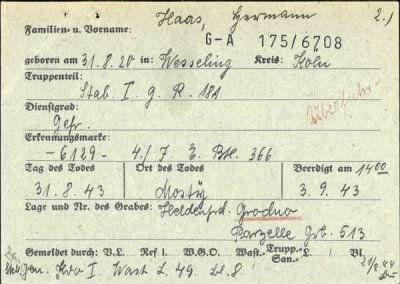 Haas, Hermann 2.)
Familien- u. Vorname:
G-A 175/6708
geboren am 31.8.20 in: Wesseling Kreis: Köln
Truppenteil:
Stab. I. g. R. 181
Dienstgrad:
Gefr.
Überführ-
Erkennungsmarke:
-6129- 4./ J. E. Btl. 366
Tag des Todes Ort des Todes Beerdigt am 14 00
31.8.43 Mosty 3.9.43
Lage und Nr. des Grabes: Heldenfrd. Grodno
Parzelle Grb. 513
Gemeldet durch: V.L. Ref. I. W.G.O. Wast.- Trupp.- San.- L. Bl.
I Wast L. 49 Bl. 8